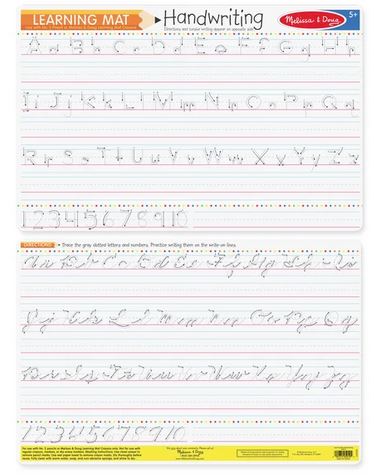 LEARNING MAT Handwriting Melissa & Doug 5+
Directions and cursive writing appear on opposite side
Aa Bb Cc Dd Ee Ff Gg Hh
Ii Jj Kk Ll Mm Nn Oo Pp Qq
Rr Ss Tt Uu Vv Ww Xx Yy Zz
1 2 3 4 5 6 7 8 9 10
DIRECTIONS • Trace the gray dotted letters and numbers. Practice writing them on the write-on lines.
Aa Bb Cc Dd Ee Ff Gg Hh Ii
Jj Kk Ll Mm Nn Oo Pp Qq
Rr Ss Tt Uu Vv Ww Xx Yy Zz
1 2 3 4 5 6 7 8 9 10
Melissa & Doug